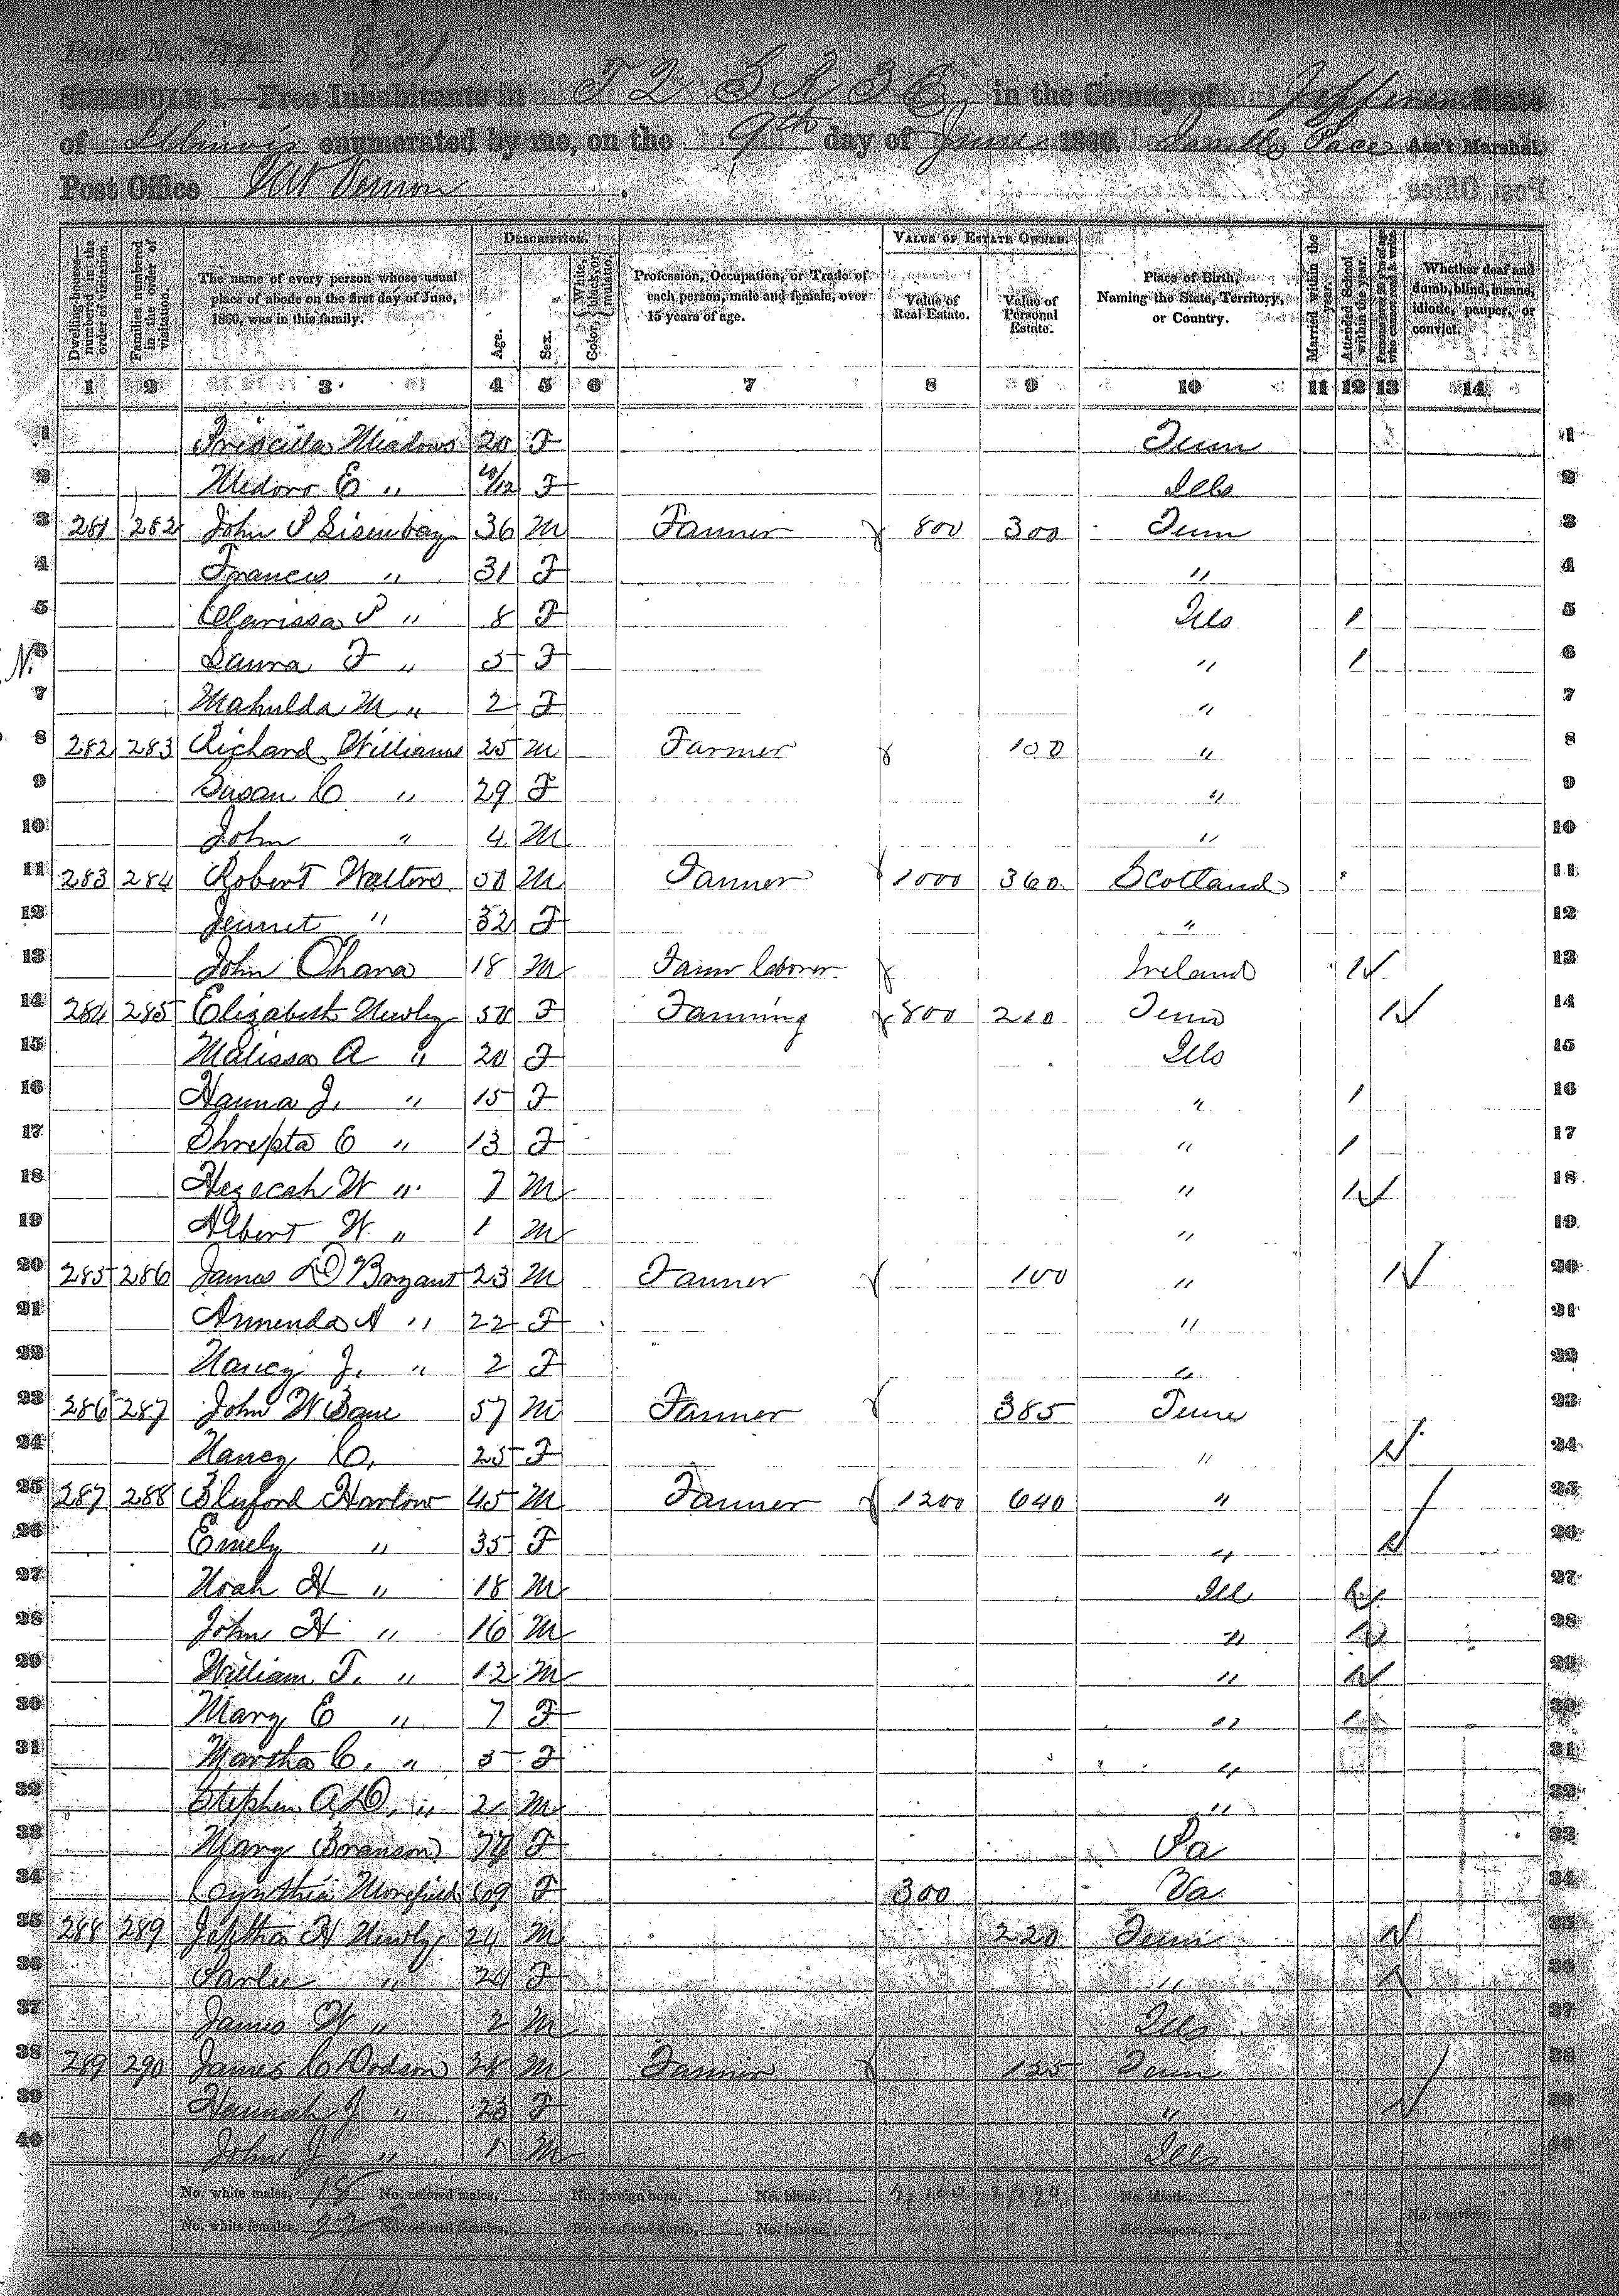 Page No. 44 831
SCHEDULE 1.—Free Inhabitants in T 2 S R 3 E in the County of Jefferson State
of Illinois enumerated by me, on the 9th day of June 1860. Pace Ass't Marshal.
Post Office Mt Vernon.
DESCRIPTION. VALUE OF ESTATE OWNED.
Dwelling-houses—numbered in the order of visitation.
Families numbered in the order of visitation.
The name of every person whose usual place of abode on the first day of June, 1860, was in this family.
Age.
Sex.
Color, White, black, or mulatto.
Profession, Occupation, or Trade of each person, male and female, over 15 years of age.
Value of Real Estate.
Value of Personal Estate.
Place of Birth, Naming the State, Territory, or Country.
Married within the year.
Attended School within the year.
Persons over 20 y'rs of age who cannot read & write.
Whether deaf and dumb, blind, insane, idiotic, pauper, or convict.
1 2 3 4 5 6 7 8 9 10 11 12 13 14
1 Priscilla Meadows 20 F Tenn 1
2 Medora E " 10/12 F Ills 2
3 281 282 John P Sisenbay 36 M Farmer 800 300 Tenn 3
4 Frances " 31 F " 4
5 Clarissa P " 8 F Ills 1 5
6 Laura F " 5 F " 1 6
7 Mahulda M " 2 F " 7
8 282 283 Richard Williams 25 M Farmer 100 " 8
9 Susan C " 29 F " 9
10 John " 4 M " 10
11 283 284 Robert Walters 50 M Farmer 1000 360 Scotland 11
12 Jennet " 32 F " 12
13 John Ohara 18 M Farm laborer Ireland 1 13
14 284 285 Elizabeth Newby 50 F Farming 800 210 Tenn 1 14
15 Malissa A " 20 F Ills 15
16 Hanna J. " 15 F " 1 16
17 Threpta E " 13 F " 1 17
18 Hezecah W " 7 M " 1 18
19 Albert W. " 1 M " 19
20 285 286 James D Bryant 23 M Farmer 100 " 1 20
21 Armenda A " 22 F " 21
22 Nancy J. " 2 F " 22
23 286 287 John W Bane 57 M Farmer 385 Tenn 23
24 Nancy C. 25 F " 1 24
25 287 288 Bluford Harlow 45 M Farmer 1200 640 " 25
26 Emely " 35 F " 1 26
27 Noah H " 18 M Ill 1 27
28 John H " 16 M " 1 28
29 William T. " 12 M " 1 29
30 Mary E " 7 F " 1 30
31 Martha C. " 5 F " 31
32 Stephen A.D. " 2 M " 32
33 Mary Branson 74 F Pa 33
34 Cynthia Morefield 69 F 300 Va 34
35 288 289 Jeptha H Newby 24 M 220 Tenn 1 35
36 Parlee " 24 F " 1 36
37 James W " 2 M Ills 37
38 289 290 James C Dodson 28 M Farmer 125 Tenn 38
39 Hannah J " 23 F " 1 39
40 John J " 1 M Ills 40
No. white males, 18 No. colored males, No. foreign born, No. blind, 4,100 No. idiotic,
No. white females, 22 No. colored females, No. deaf and dumb, No. insane, No. paupers, No. convicts,